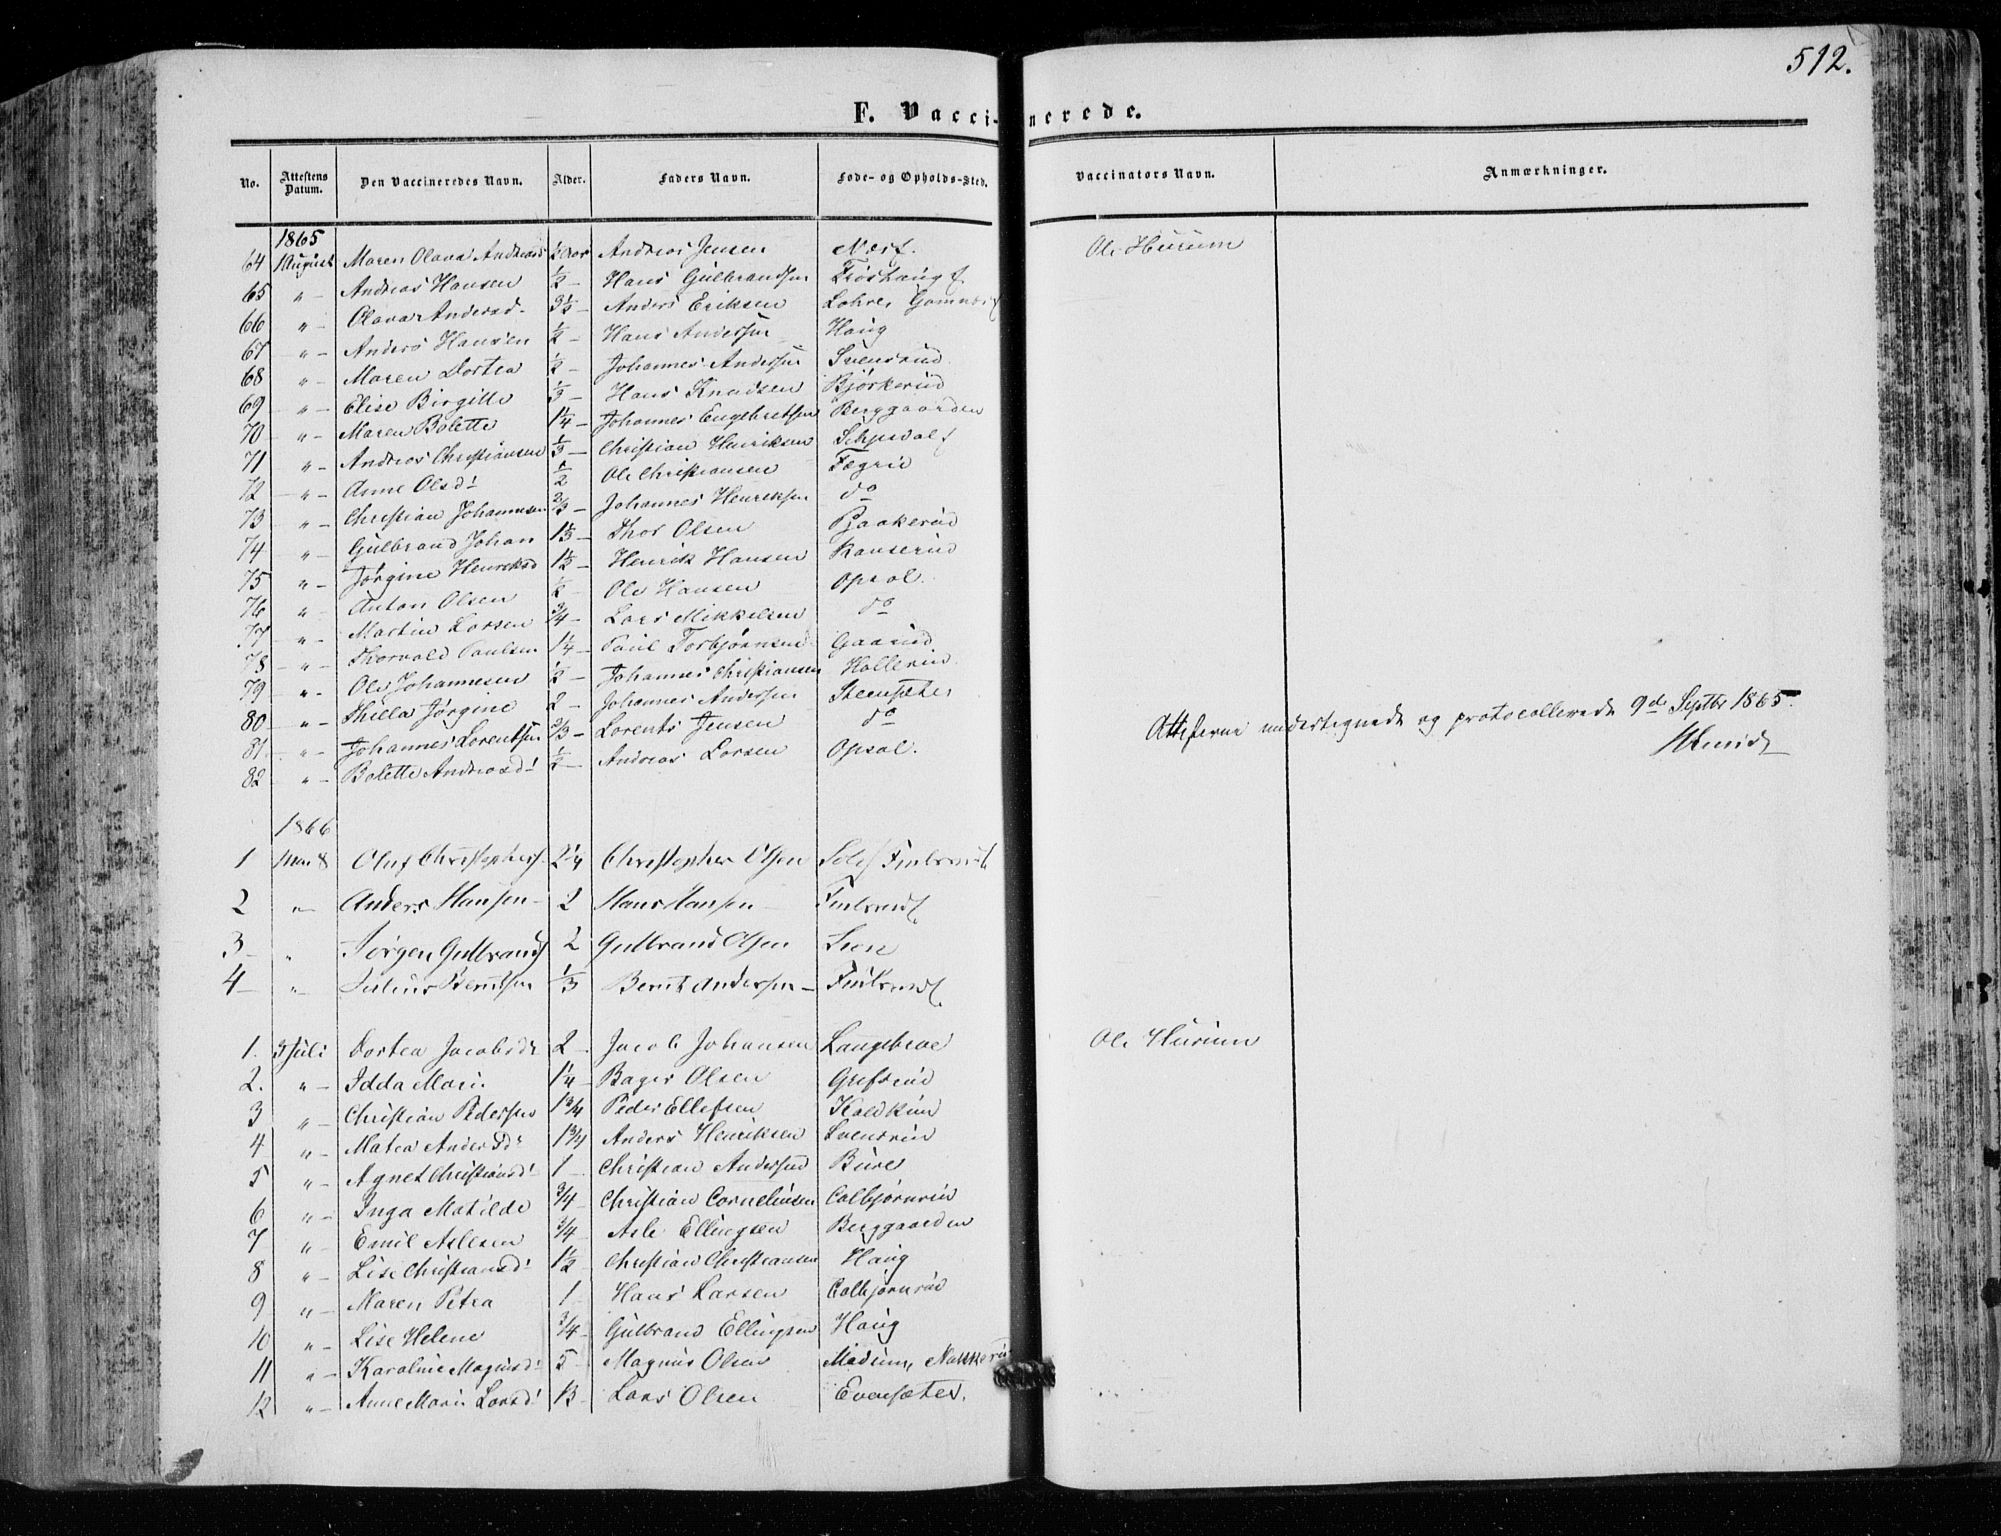 512.
F. Vaccinerede.
No. Attestens Datum. Den Vaccineredes Navn. Alder. Faders Navn. Føde- og Opholds-Sted. Vaccinators Navn. Anmærkninger.
1865
64 August Maren Olava Andreasd ½ Aar Andreas Jensen Næss. Ole Hurum
65 " Andreas Hansen ½ Hans Gulbrandsen
66 " Olava Andersd. 3½ Anders Eriksen Lohre,
67 " Anders Hansen ½ Hans Andersen Haug
68 " Maren Dortea ½ Johannes Andersen Svensrud
69 " Elise Birgitte ⅓ Hans Knudsen Bjørkerud
70 " Maren Bolette 1¼ Johannes Engebretsen Berggaarden
71 " Andreas Christiansen ⅓ Christian Henriksen
72 " Anne Olsd. ½ Ole Christiansen Fægrie
73 " Christian Johannesen ⅔ Johannes Henriksen do
74 " Gulbrand Johan 1⅓ Thor Olsen Pjaakerud
75 " Jørgine Henriksd 1½ Henrik Hansen Ranserud
76 " Anton Olsen ½ Ole Hansen Opsal.
77 " Martin Larsen ¾ Lars Mikkelsen do
78 " Thorvald Paulsen 1¼ Paul Torbjørnsen Gaarud
79 " Ole Johannesen ½ Johannes Christiansen Hollerud
80 " Thilla Jørgine 2 Johannes Andersen Steensæter
81 " Johannes Lorentsen ⅔ Lorents Jensen do
82 " Bolette Andreasd. ½ Andreas Larsen Opsal.
Attesterne undertegnede og protocollerede 9de Septbr 1865.
1866
1 Mai 8 Oluf Christophers. 2¼ Christopher Olsen
2 " Anders Hansen 2 Hans Hansen
3 " Jørgen Gulbrands 2 Gulbrand Olsen Lien
4 " Julius Berntsen ⅓ Bernt Andersen
1. 3 Juli Dortea Jacobsdr 2 Jacob Johansen Langebroe Ole Hurum
2. " Idda Mari. 1¼ Bager Olsen Grefsrud
3 " Christian Pedersen 1¾ Peder Ellefsen Koldkin
4 " Matea Andersdr 1¾ Anders Henriksen Svensrud
5 " Agnet Christiansd. 1 Christian Andersen Bure
6 " Inga Matilde ¾ Christian Corneliusen Colbjørnrud
7 " Emil Aslesen ¾ Asle Ellingsen Berggaarden
8 " Lise Christiansd. 1½ Christian Christiansen Haug
9 " Maren Petra 1 Hans Larsen Colbjørnrud
10 " Lise Helene ¾ Gulbrand Ellingsen Haug
11 " Karoline Magnusd. 5 Magnus Olsen Modum, Nakkerud
12 " Anne Marie Larsd. 13 Lars Olsen Evensæter.